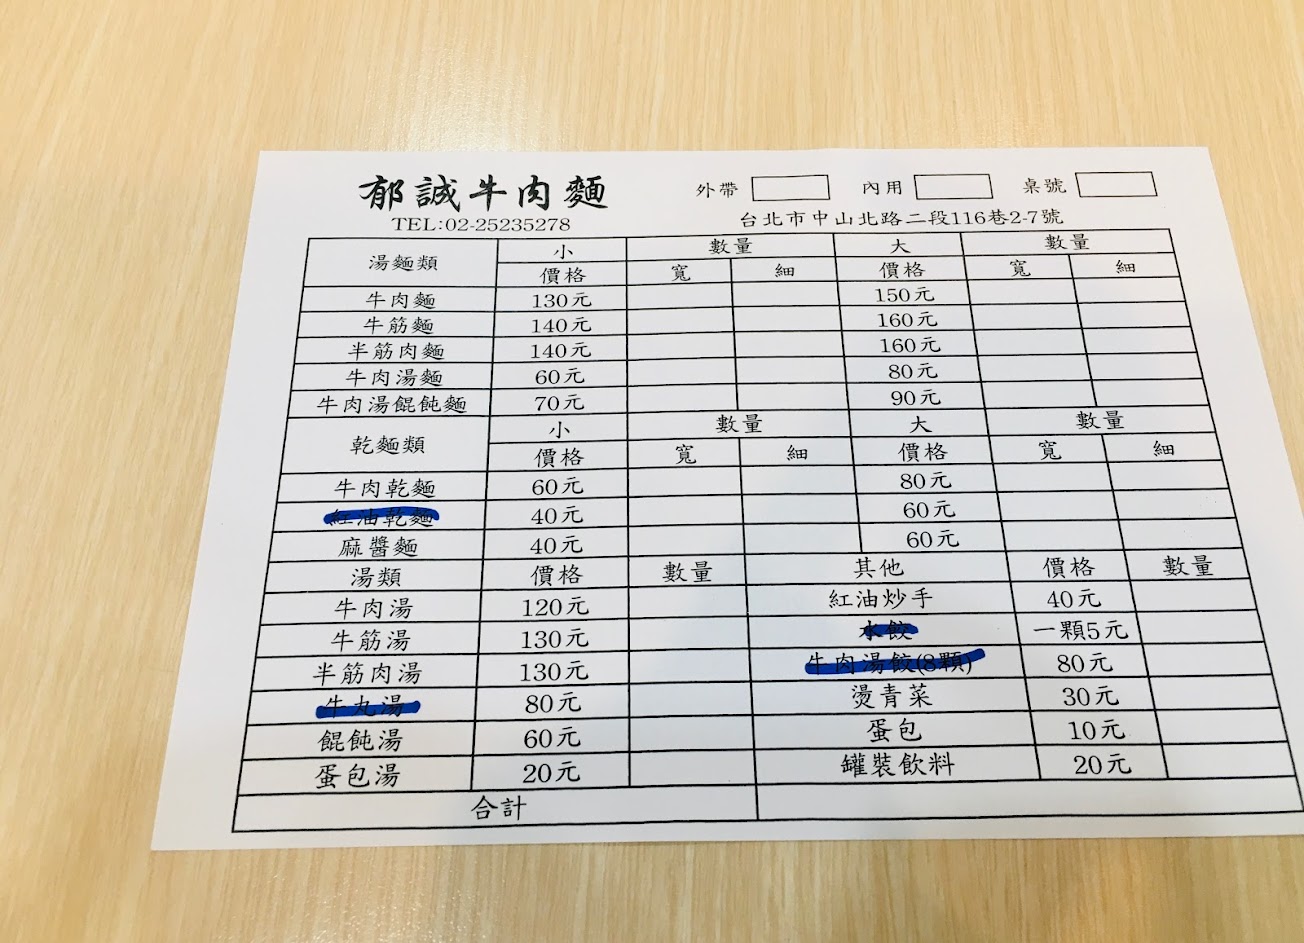 郁誠牛肉麵 外帶 內用 桌號
TEL:02-25235278 台北市中山北路二段116巷2-7號
湯麵類 小 數量 大 數量
價格 寬 細 價格 寬 細
牛肉麵 130元 150元
牛筋麵 140元 160元
半筋肉麵 140元 160元
牛肉湯麵 60元 80元
牛肉湯餛飩麵 70元 90元
乾麵類 小 數量 大 數量
價格 寬 細 價格 寬 細
牛肉乾麵 60元 80元
紅油乾麵 40元 60元
麻醬麵 40元 60元
湯類 價格 數量 其他 價格 數量
牛肉湯 120元 紅油炒手 40元
牛筋湯 130元 水餃 一顆5元
半筋肉湯 130元 牛肉湯餃(8顆) 80元
牛丸湯 80元 燙青菜 30元
餛飩湯 60元 蛋包 10元
蛋包湯 20元 罐裝飲料 20元
合計